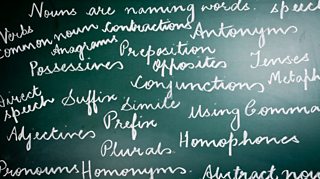 Nouns are naming words. speech
Verbs
common noun contractions Antonyms
Anagrams Preposition
Possessives Opposites Tenses
Conjunctions Metaph
Direct
speech Suffix Simile Using Comma
Adjectives Prefix
Plurals Homophones
Pronouns Homonyms Abstract nou